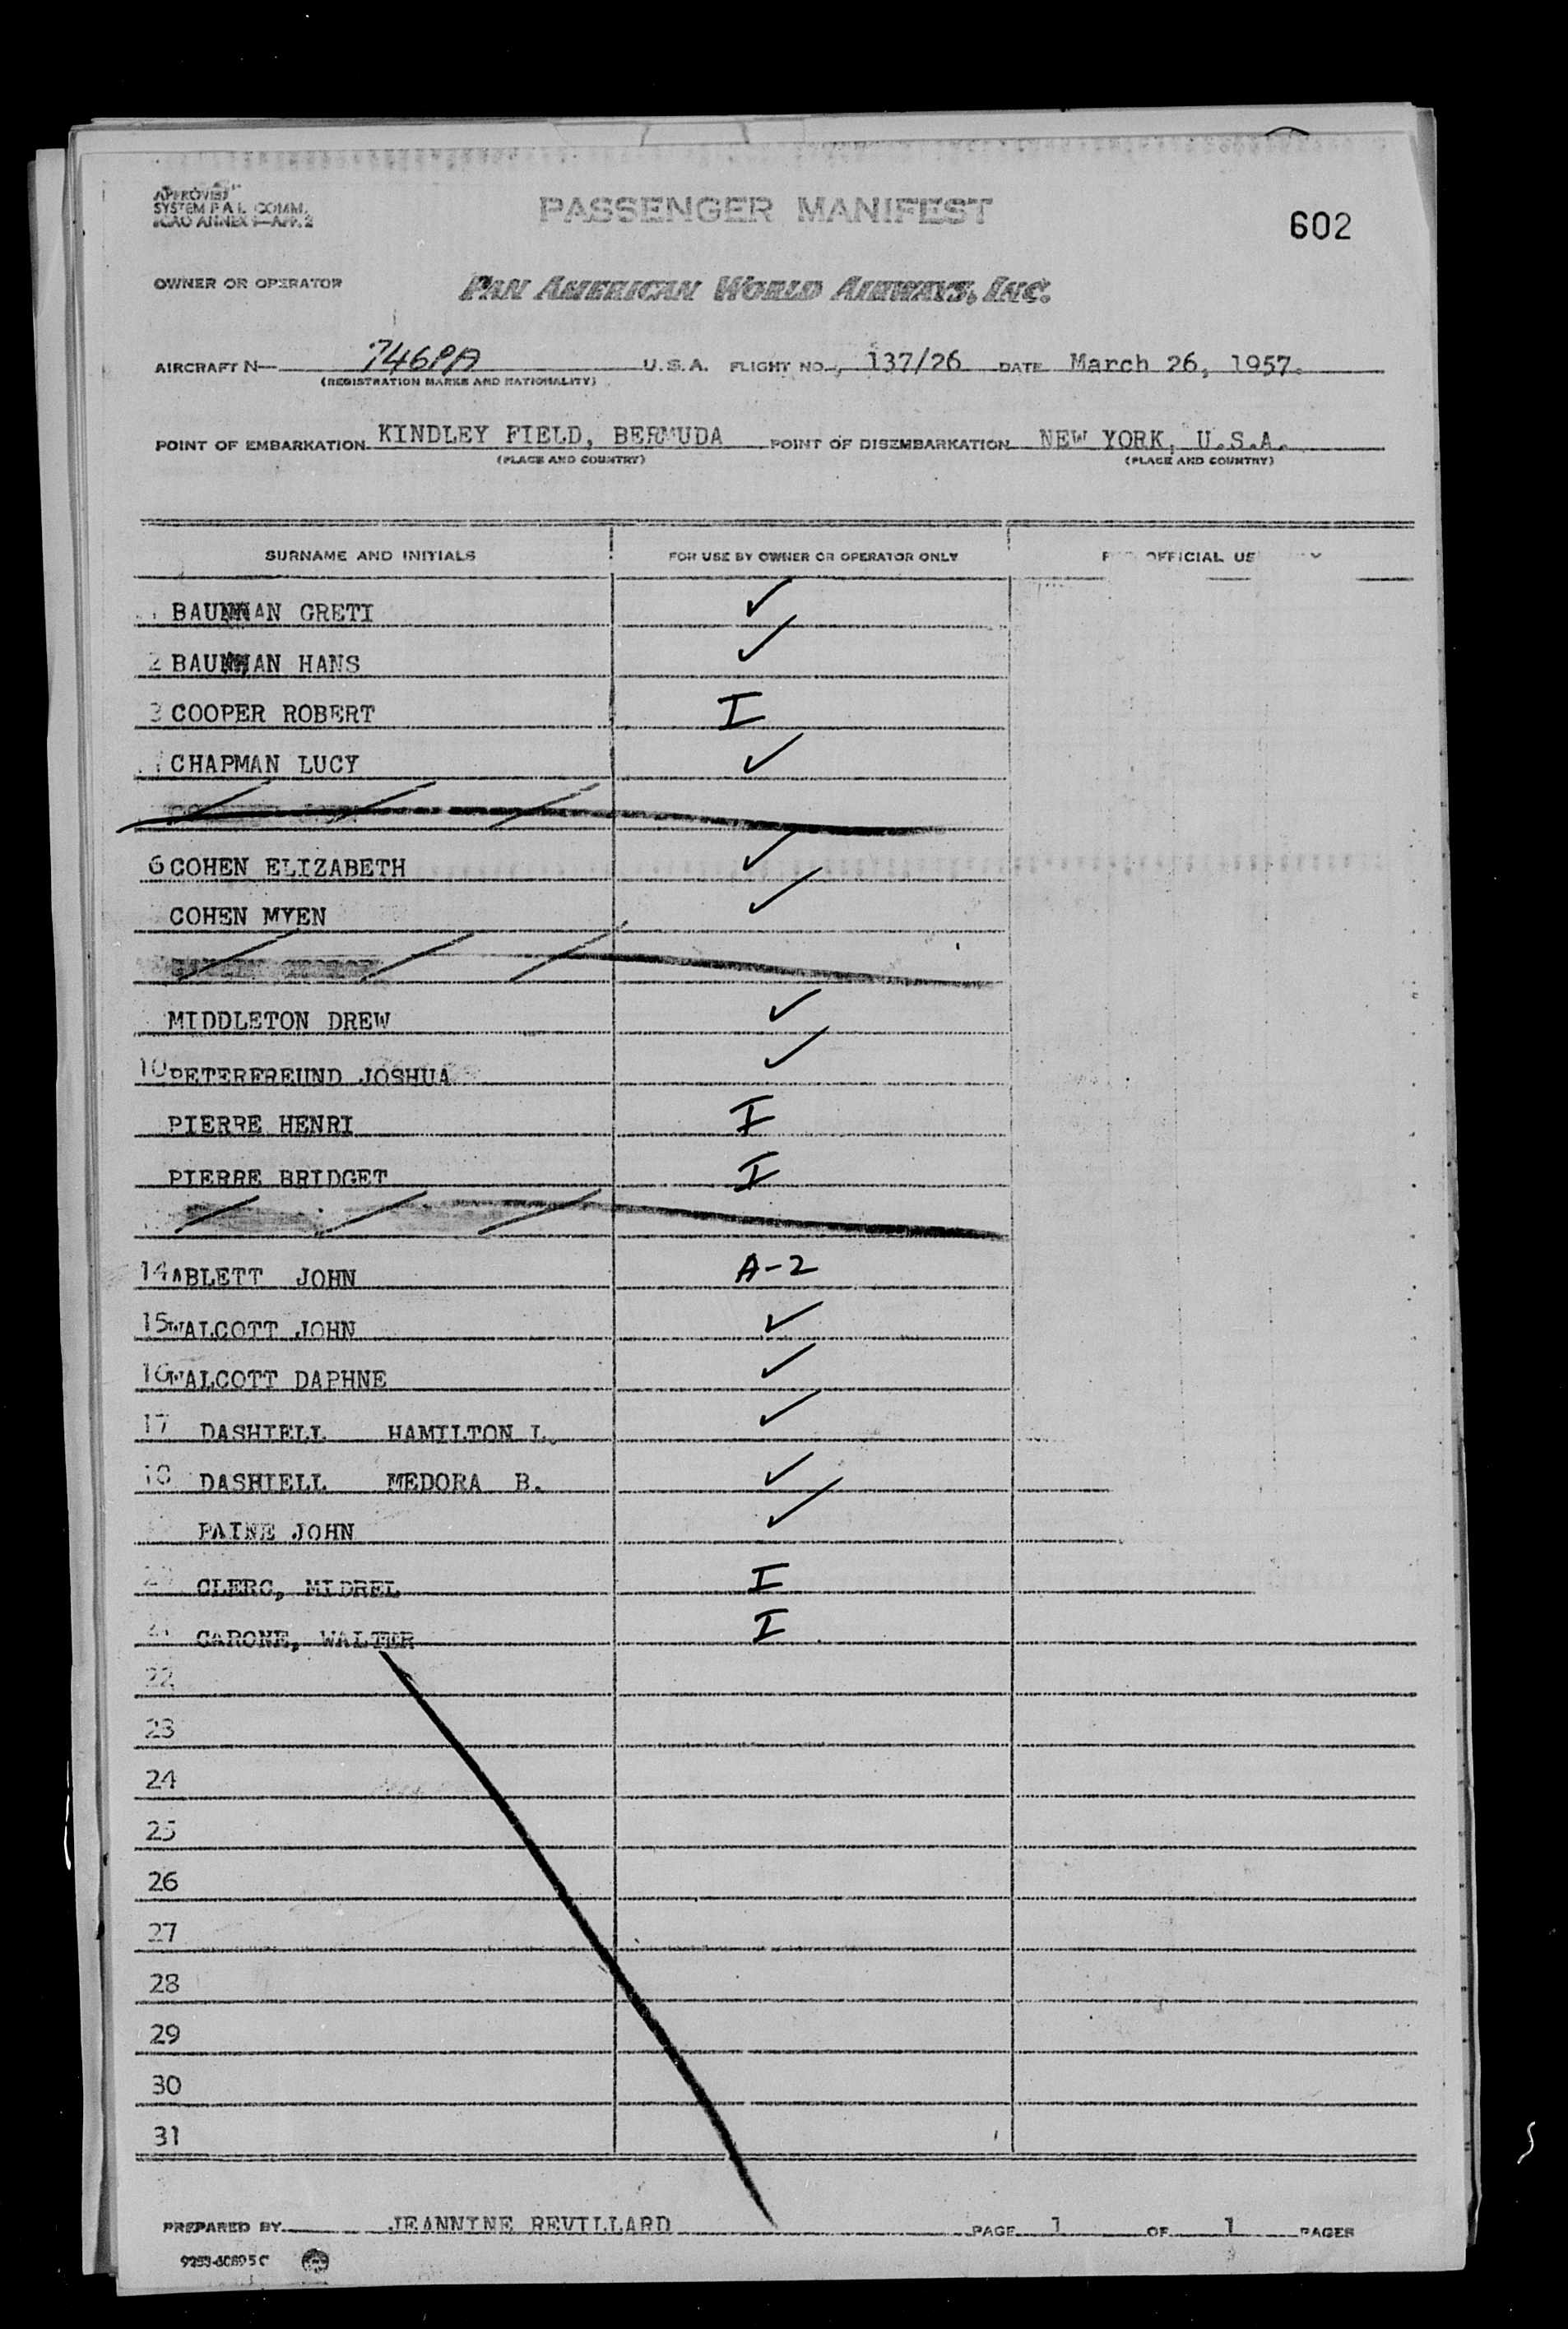 APPROVED
SYSTEM F.A.L. COMM.
ICAO ANNEX 9—APP. 2
PASSENGER MANIFEST
602
OWNER OR OPERATOR PAN AMERICAN WORLD AIRWAYS, INC.
AIRCRAFT N— 746PA U.S.A. FLIGHT NO. 137/26 DATE March 26, 1957.
(REGISTRATION MARKS AND NATIONALITY)
POINT OF EMBARKATION KINDLEY FIELD, BERMUDA POINT OF DISEMBARKATION NEW YORK, U.S.A.
(PLACE AND COUNTRY) (PLACE AND COUNTRY)
SURNAME AND INITIALS FOR USE BY OWNER OR OPERATOR ONLY OFFICIAL
GRETI ✓
2 HANS ✓
3 COOPER ROBERT I
CHAPMAN LUCY ✓
6 COHEN ELIZABETH ✓
COHEN MYEN ✓
MIDDLETON DREW ✓
10 PETERFREUND JOSHUA ✓
PIERRE HENRI I
PIERRE BRIDGET I
14 ABLETT JOHN A-2
15 WALCOTT JOHN ✓
16 WALCOTT DAPHNE ✓
17 DASHIELL HAMILTON L. ✓
18 DASHIELL MEDORA B. ✓
PAINE JOHN ✓
CLERC, MIDREL I
CARONE, WALTER I
22
23
24
25
26
27
28
29
30
31
PREPARED BY JEANNINE REVILLARD PAGE 1 OF 1 PAGES